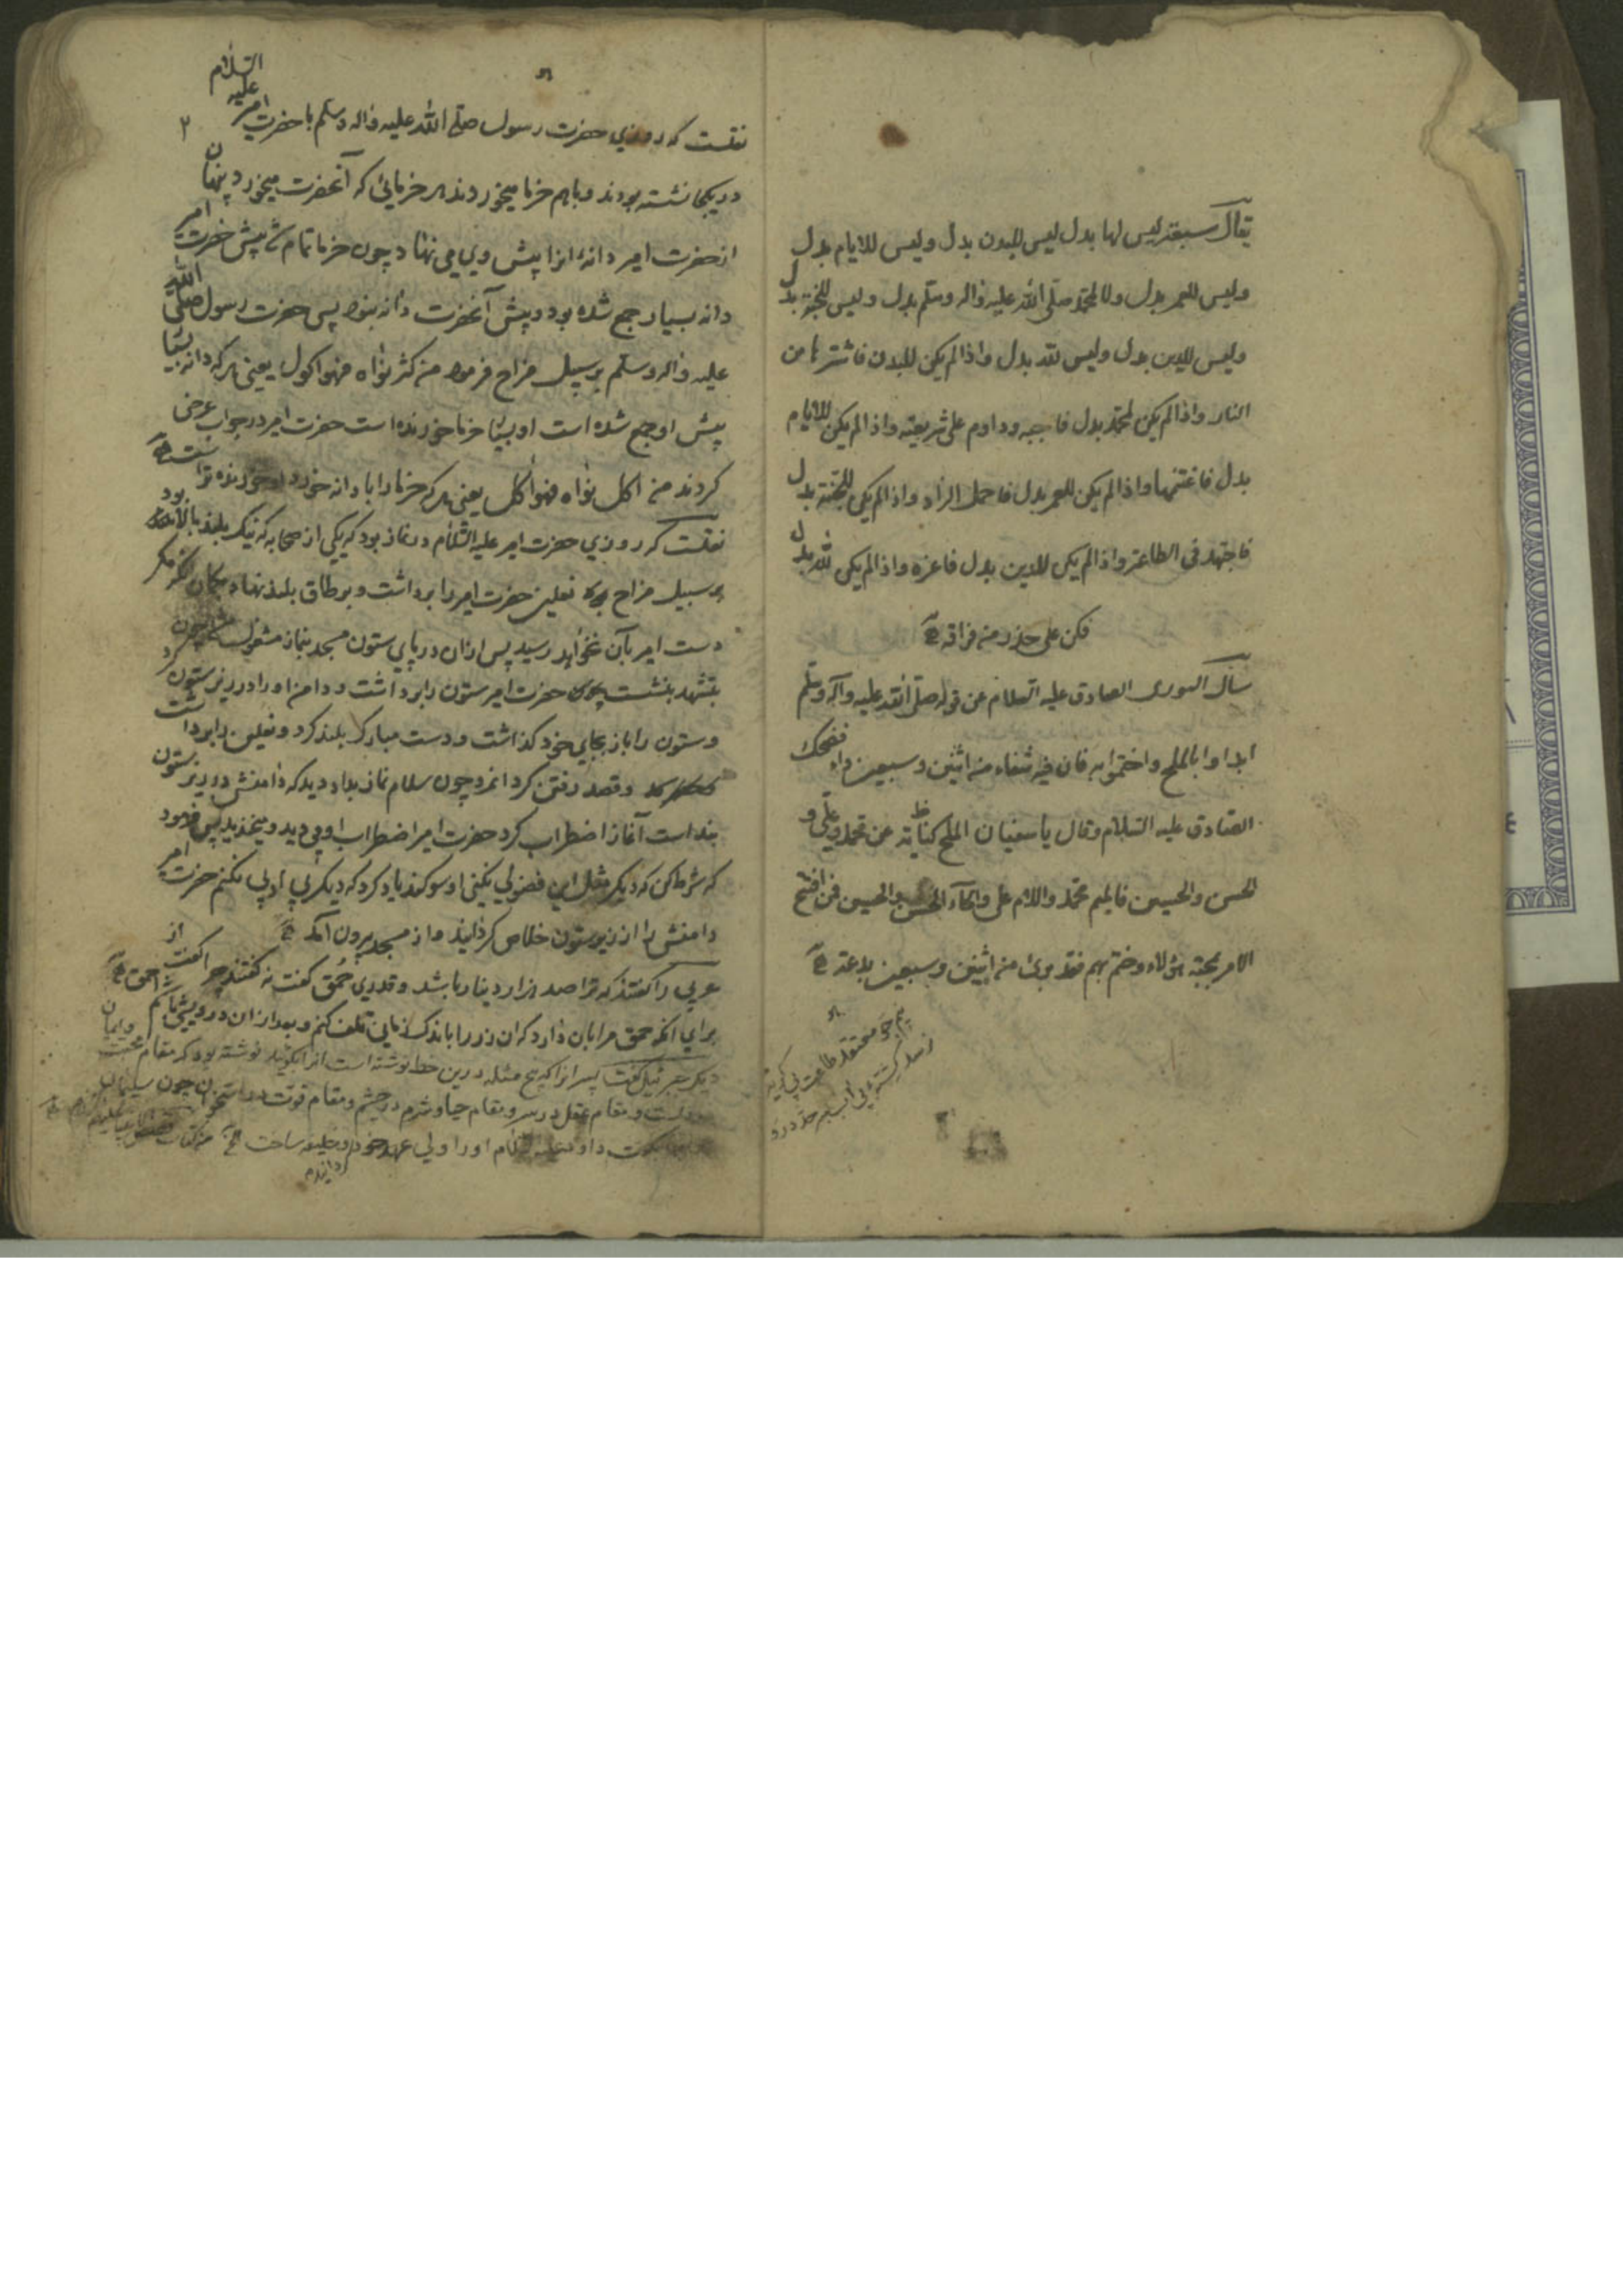 يقال سبعة ليس لها بدل ليس للبدن بدل وليس للايام بدل
وليس للعمر بدل ولا لمحمد صلى الله عليه واله وسلم بدل وليس للجنة بدل
وليس للدين بدل وليس لله بدل واذا لم يكن للبدن فاشترها من
النار واذا لم يكن لمحمد بدل فاحبه وداوم على شريعته واذا لم يكن للايام
بدل فاغتنمها واذا لم يكن للعمر بدل فاحمل الزاد واذا لم يكن للجنة بدل
فاجتهد فى الطاعة واذا لم يكن للدين بدل فاعزه واذا لم يكن لله بدل
فكن على حذر من فراقه
سأل الثورى الصادق عليه السلام عن قوله صلى الله عليه وآله وسلم
ابداوا بالملح واختموا به فان فيه شفاء من اثنين وسبعين داء فضحك
الصادق عليه السلام وقال يا سفيان الملح كناية عن محمد وعلي و
الحسن والحسين فالميم محمد واللام على والحاء الحسن والحسين فمن افتتح
الامر بمحبة هؤلاء وختم بهم فقد برئ من اثنين وسبعين بدعة
نقلست كه روزي حضرت رسول صلى الله عليه واله وسلم با حضرت امير عليه السلام
٢
در يكجا نشسته بودند و باهم خرما ميخوردند هر خرمائى كه آنحضرت ميخورد پنهان
از حضرت امير دانهٔ انرا پيش وي مي نهاد چون خرما تمام شد پيش حضرت امير
دانه بسيار جمع شده بود و پيش آنحضرت دانه نبود پس حضرت رسول صلى الله
عليه واله وسلم بر سبيل مزاح فرمود من كثر نواه فهو اكول يعنى هر كه دانه بسيار
پيش او جمع شده است او بسيار خرما خورنده است حضرت امير در جواب عرض
كردند من اكل نواه فهو اكل يعنى هر كه خرما را با دانه خورد او خورنده تر است
نقلست كه روزي حضرت امير عليه السلام در نماز بود كه يكي از صحابه كه نيك بلند بالا بود
بر سبيل مزاح نعلين حضرت امير را برداشت و بر طاق بلند نهاد بكمان آنكه مكر
دست امير بآن نخواهد رسيد پس ازان در پاي ستون مسجد بنماز مشغول شد چون
بتشهد بنشست حضرت امير ستون را برداشت و دامن او را در زير ستون كرد
و ستون را باز بجاي خود كذاشت و دست مبارك بلند كرد و نعلين را برداشت
و قصد رفتن كرد انمرد چون سلام نماز بداد ديد كه دامنش در زير ستون
بند است آغاز اضطراب كرد حضرت امير اضطراب او مي ديد و ميخنديد پس فرمود
كه شرط كن كه ديكر مثل اين فضولي نكني او سوكند ياد كرد كه ديكر بي ادبي نكنم حضرت امير
دامنش را از زير ستون خلاص كردانيد و از مسجد بيرون آمد
عربي را كفتند كه ترا صد هزار دينار باشد و قدري حمق كفت نه كفتند چرا كفت از
براي آنكه حمق مرا بان دارد كه ان زر را باندك زماني تلف كنم و بعد ازان درويش باشم احمق
ديكر جبرئيل كفت پس انرا كه پنج مسئله درين خط نوشته است انرا بكوئيد نوشته بود كه مقام محبت و ايمان
و مقام عقل در سر و مقام حيا و شرم در چشم و مقام قوت در استخوان چون سليمان
بكفت داود عليه السلام او را ولي عهد خود و خليفه ساخت